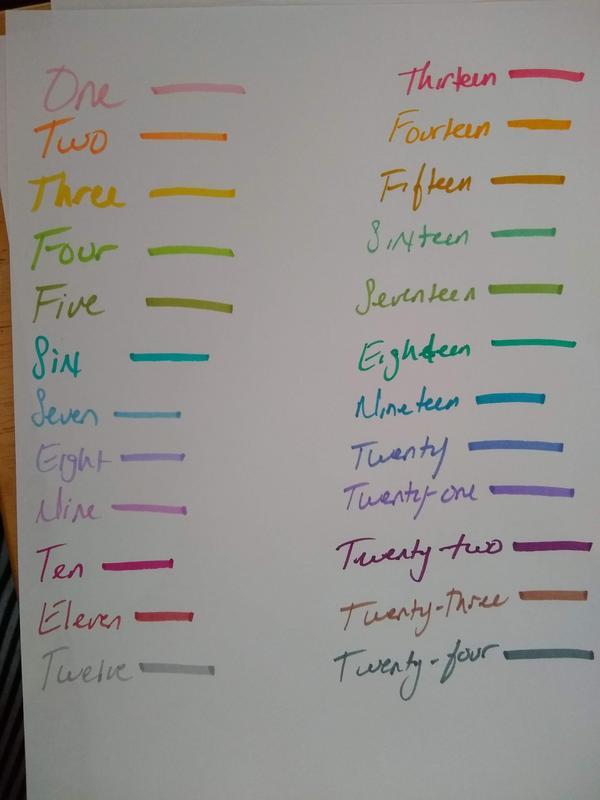 One
Two
Three
Four
Five
Six
Seven
Eight
Nine
Ten
Eleven
Twelve
Thirteen
Fourteen
Fifteen
Sixteen
Seventeen
Eighteen
Nineteen
Twenty
Twenty-one
Twenty-two
Twenty-Three
Twenty-four